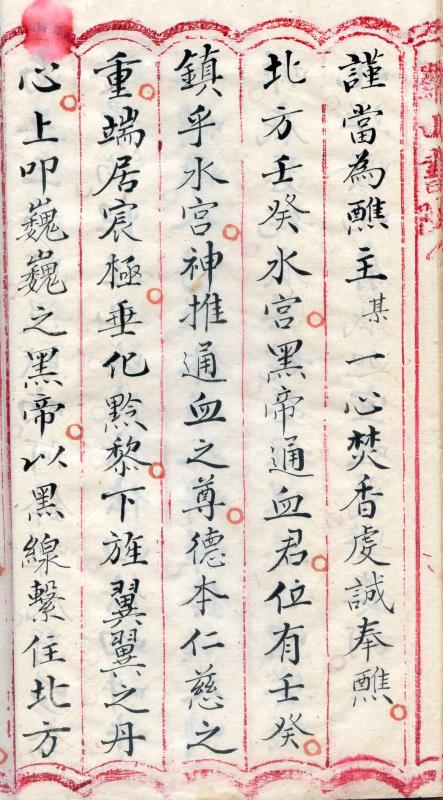 謹當為醮主某一心焚香虔誠奉醮
北方壬癸水宮黑帝通血君位有壬癸
鎮乎水宮神推通血之尊德本仁慈之
重端居宸極垂化黔黎下旌翼翼之丹
心上叩巍巍之黑帝以黑線繫住北方